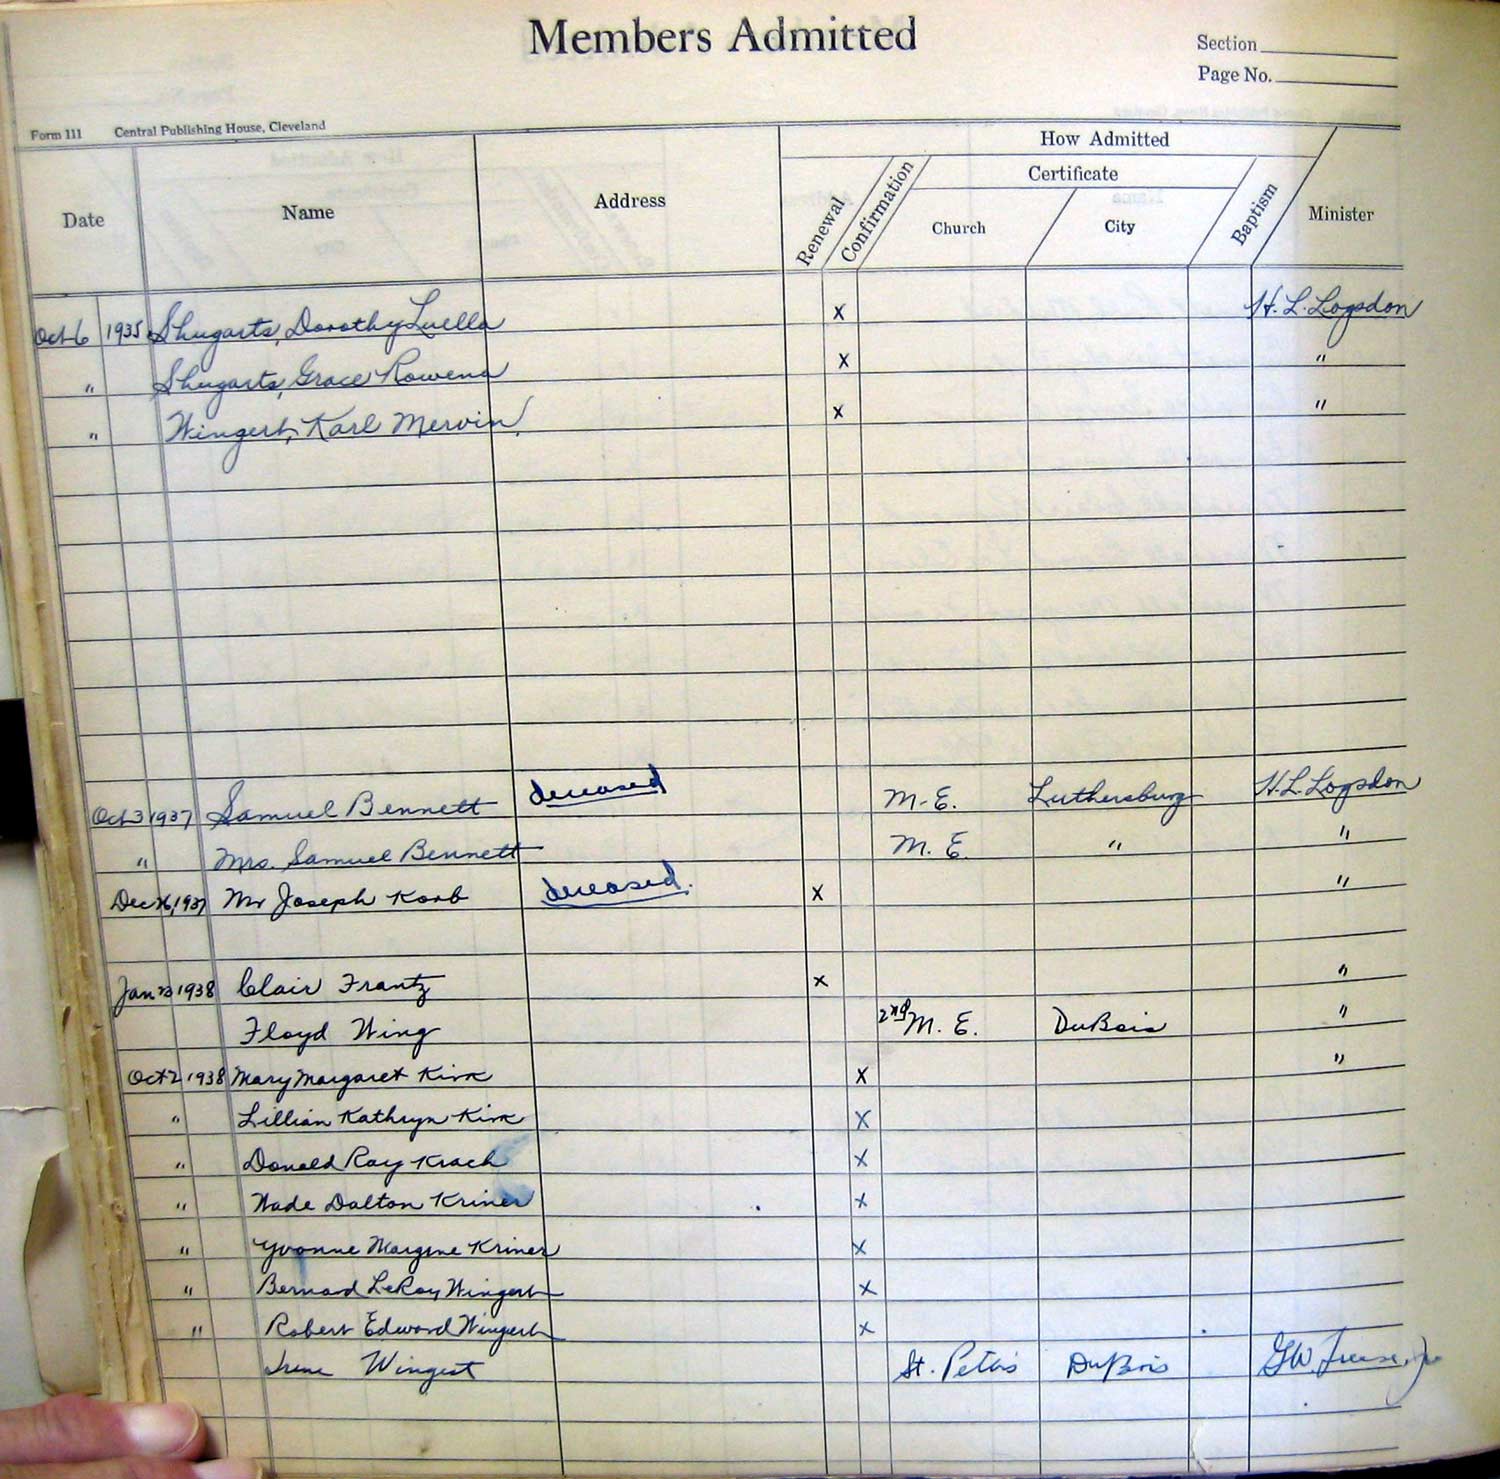 Members Admitted
Section
Page No.
Form 111 Central Publishing House, Cleveland
How Admitted
Certificate
Date Name Address Renewal Confirmation Church City Baptism Minister
Oct 6 1935 Shugarts, Dorothy Luella x H. L. Logsdon
" Shugarts, Grace Rowena x "
" Wingert, Karl Mervin x "
Oct 3 1937 Samuel Bennett deceased M.E. Luthersburg H.L. Logsdon
" Mrs. Samuel Bennett M.E. " "
Dec 26, 1937 Mr Joseph Korb deceased. x "
Jan 1938 Clair Frantz x "
Floyd Wing 2nd M.E. DuBois "
Oct 2 1938 Mary Margaret Kirk x "
" Lillian Kathryn Kirk x
" Donald Ray Krach x
" Wade Dalton Kriner x
" Yvonne Margene Kriner x
" Bernard LeRoy Wingert x
" Robert Edward Wingert x
Irene Wingert St. Peters DuBois G.W.